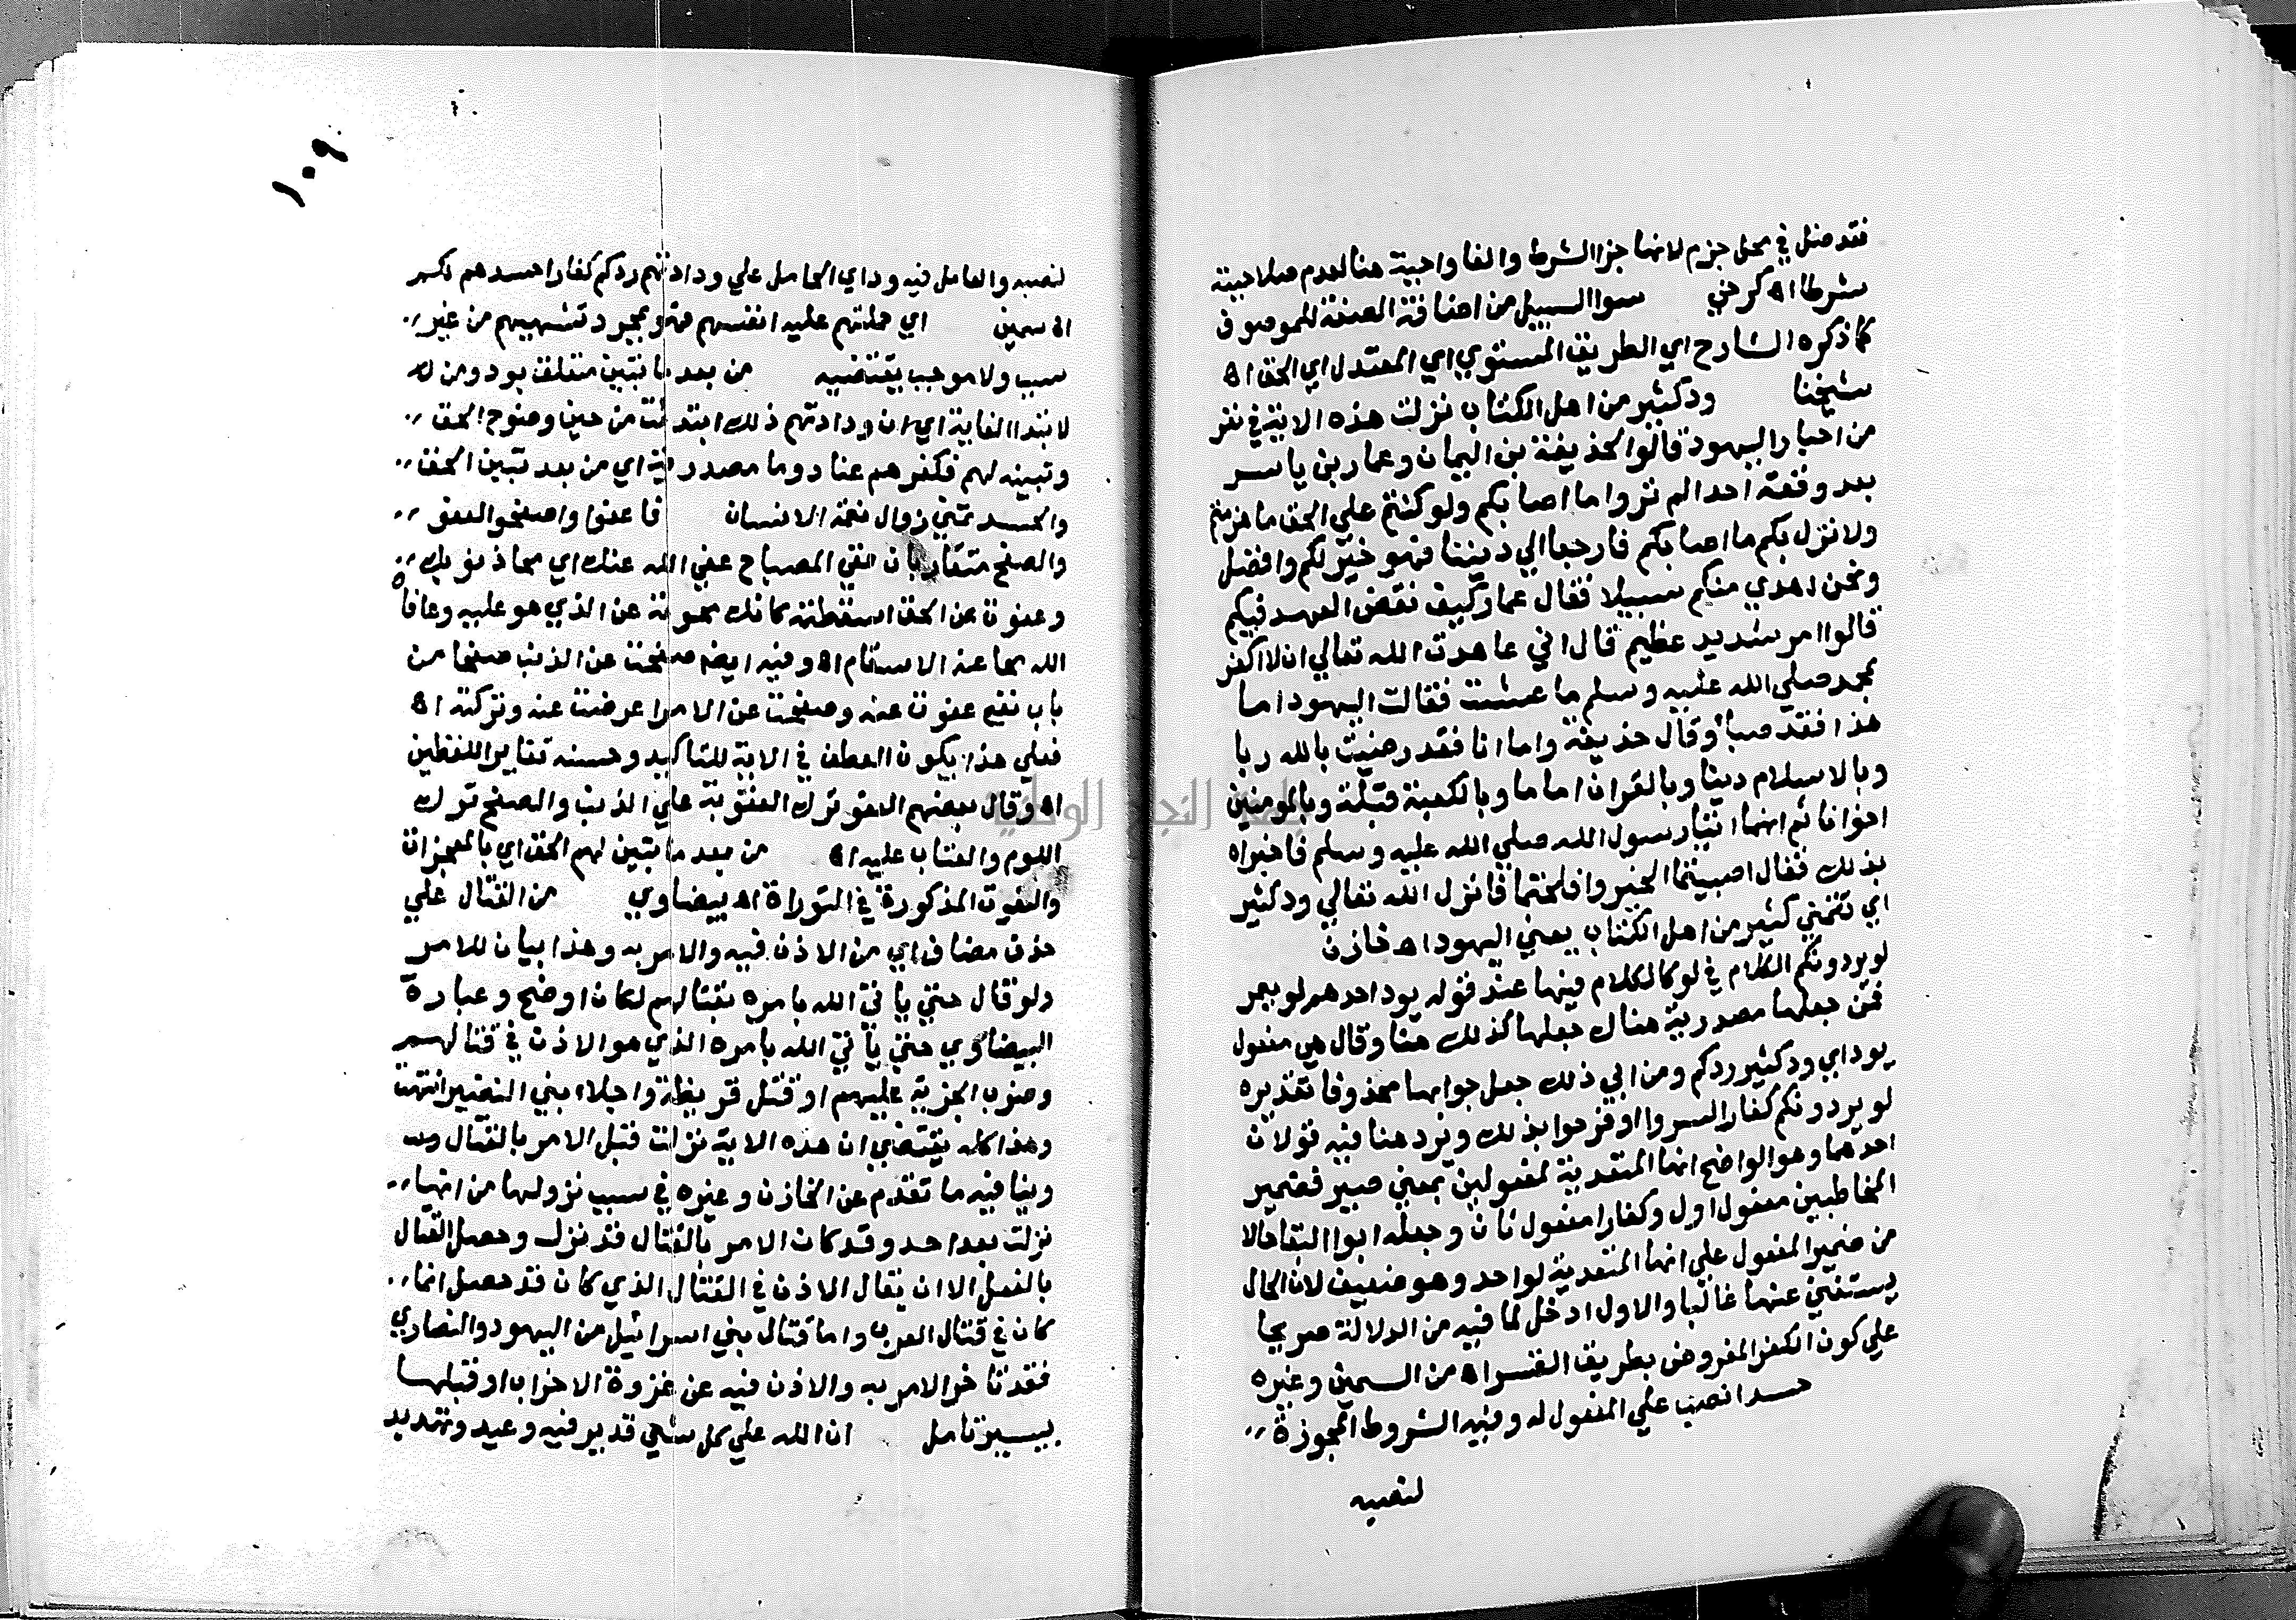 فقد ضل في محل جزم لانها جزا الشرط والفا واجبة هنا لعدم صلاحيته
شرطا اه كرخي سوا السبيل من اضافة الصفة للموصوف
كما ذكره الشارح اي الطريق المستوي اي المعتدل اي الحق اه
شيخنا ود كثير من اهل الكتاب نزلت هذه الاية في نفر
من احبار اليهود قالوا لحذيفة بن اليمان وعمار بن ياسر
بعد وقعة احد الم تروا ما اصابكم ولو كنتم علي الحق ما هزمتم
ولا نزل بكم ما اصابكم فارجعوا الي ديننا فهو خير لكم وافضل
ونحن اهدي منكم سبيلا فقال عمار كيف نقض العهد فيكم
قالوا امر شديد عظيم قال اني عاهدت الله تعالي ان لا اكفر
بمحمد صلي الله عليه وسلم ما عشت فقالت اليهود اما
هذا فقد صبأ وقال حذيفة واما انا فقد رضيت بالله ربا
وبالاسلام دينا وبالقران اماما وبالكعبة قبلة وبالمومنين
اخوانا ثم انهما اتيا رسول الله صلي الله عليه وسلم فاخبراه
بذلك فقال اصبتما الخير وافلحتما فانزل الله تعالي ود كثير
اي تمني كثير من اهل الكتاب يعني اليهود اه خازن
لو يردونكم الكلام في لو كالكلام فيها عند قوله يود احدهم لو يعمر
فمن جعلها مصدرية هناك جعلها كذلك هنا وقال هي مفعول
يود اي ود كثير ردكم ومن ابي ذلك جعل جوابها محذوفا تقديره
لو يردونكم كفارا لسروا او فرحوا بذلك ويرد هنا فيه قولان
احدهما وهو الواضح انها المتعدية لمفعولين بمعني صير فضمير
المخاطبين مفعول اول وكفارا مفعول ثان وجعله ابوا البقا حالا
من ضمير المفعول علي انها المتعدية لواحد وهو ضعيف لان الحال
يستغني عنها غالبا والاول ادخل لما فيه من الدلالة صريحا
علي كون الكفر المفروض بطريق القسر اه من السمين وغيره
حسدا نصب علي المفعول له وفيه الشروط المجوزة
لنصبه
١٠٩
لنصبه والعامل فيه ود اي الحامل علي ودادتهم ردكم كفارا حسدهم لكم
اه سمين اي حملتهم عليه انفسهم فهو بمجرد تشهيهم من غير
سبب ولا موجب يقتضيه من بعد ما تبين متعلق بود ومن له
لابتدا الغاية اي ان ودادتهم ذلك ابتدئت من حين وضوح الحق
وتبينه لهم فكفرهم عنادا وما مصدرية اي من بعد تبين الحق
والحسد تمني زوال نعمة الانسان فاعفوا واصفحوا العفو
والصفح متقاربان ففي المصباح عفي الله عنك اي محا ذنوبك
وعفوت عن الحق اسقطته كانك محوته عن الذي هو عليه وعافاه
الله محا عنه الاسقام اه وفيه ايضا صفحت عن الذنب صفحا من
باب نفع عفوت عنه وصفحت عن الامر اعرضت عنه وتركته اه
فعلي هذا يكون العطف في الاية للتاكيد وحسنه تغاير اللفظين
اه وقال بعضهم العفو ترك العقوبة علي الذنب والصفح ترك
اللوم والعتاب عليه اه من بعد ما تبين لهم الحق اي بالمعجزات
والنعوت المذكورة في التوراة اه بيضاوي من القتال علي
حذف مضاف اي من الاذن فيه والامر به وهذا بيان للامر
ولو قال حتي ياتي الله بامره بقتالهم لكان اوضح وعبارة
البيضاوي حتي ياتي الله بامره الذي هو الاذن في قتالهم
وضرب الجزية عليهم او قتل قريظة واجلاء بني النضير انتهت
وهذا كله يقتضي ان هذه الاية نزلت قبل الامر بالقتال
وينافيه ما تقدم عن الخازن وغيره في سبب نزولها من انها
نزلت بعد احد وقد كان الامر بالقتال قد نزل وحصل القتال
بالفعل الا ان يقال الاذن في القتال الذي كان قد حصل انما
كان في قتال العرب واما قتال بني اسرائيل من اليهود والنصاري
فقد تاخر الامر به والاذن فيه عن غزوة الاحزاب او قبلها
بيسير تامل ان الله علي كل شي قدير فيه وعيد وتهديد
جامعة النجاح الوطنية